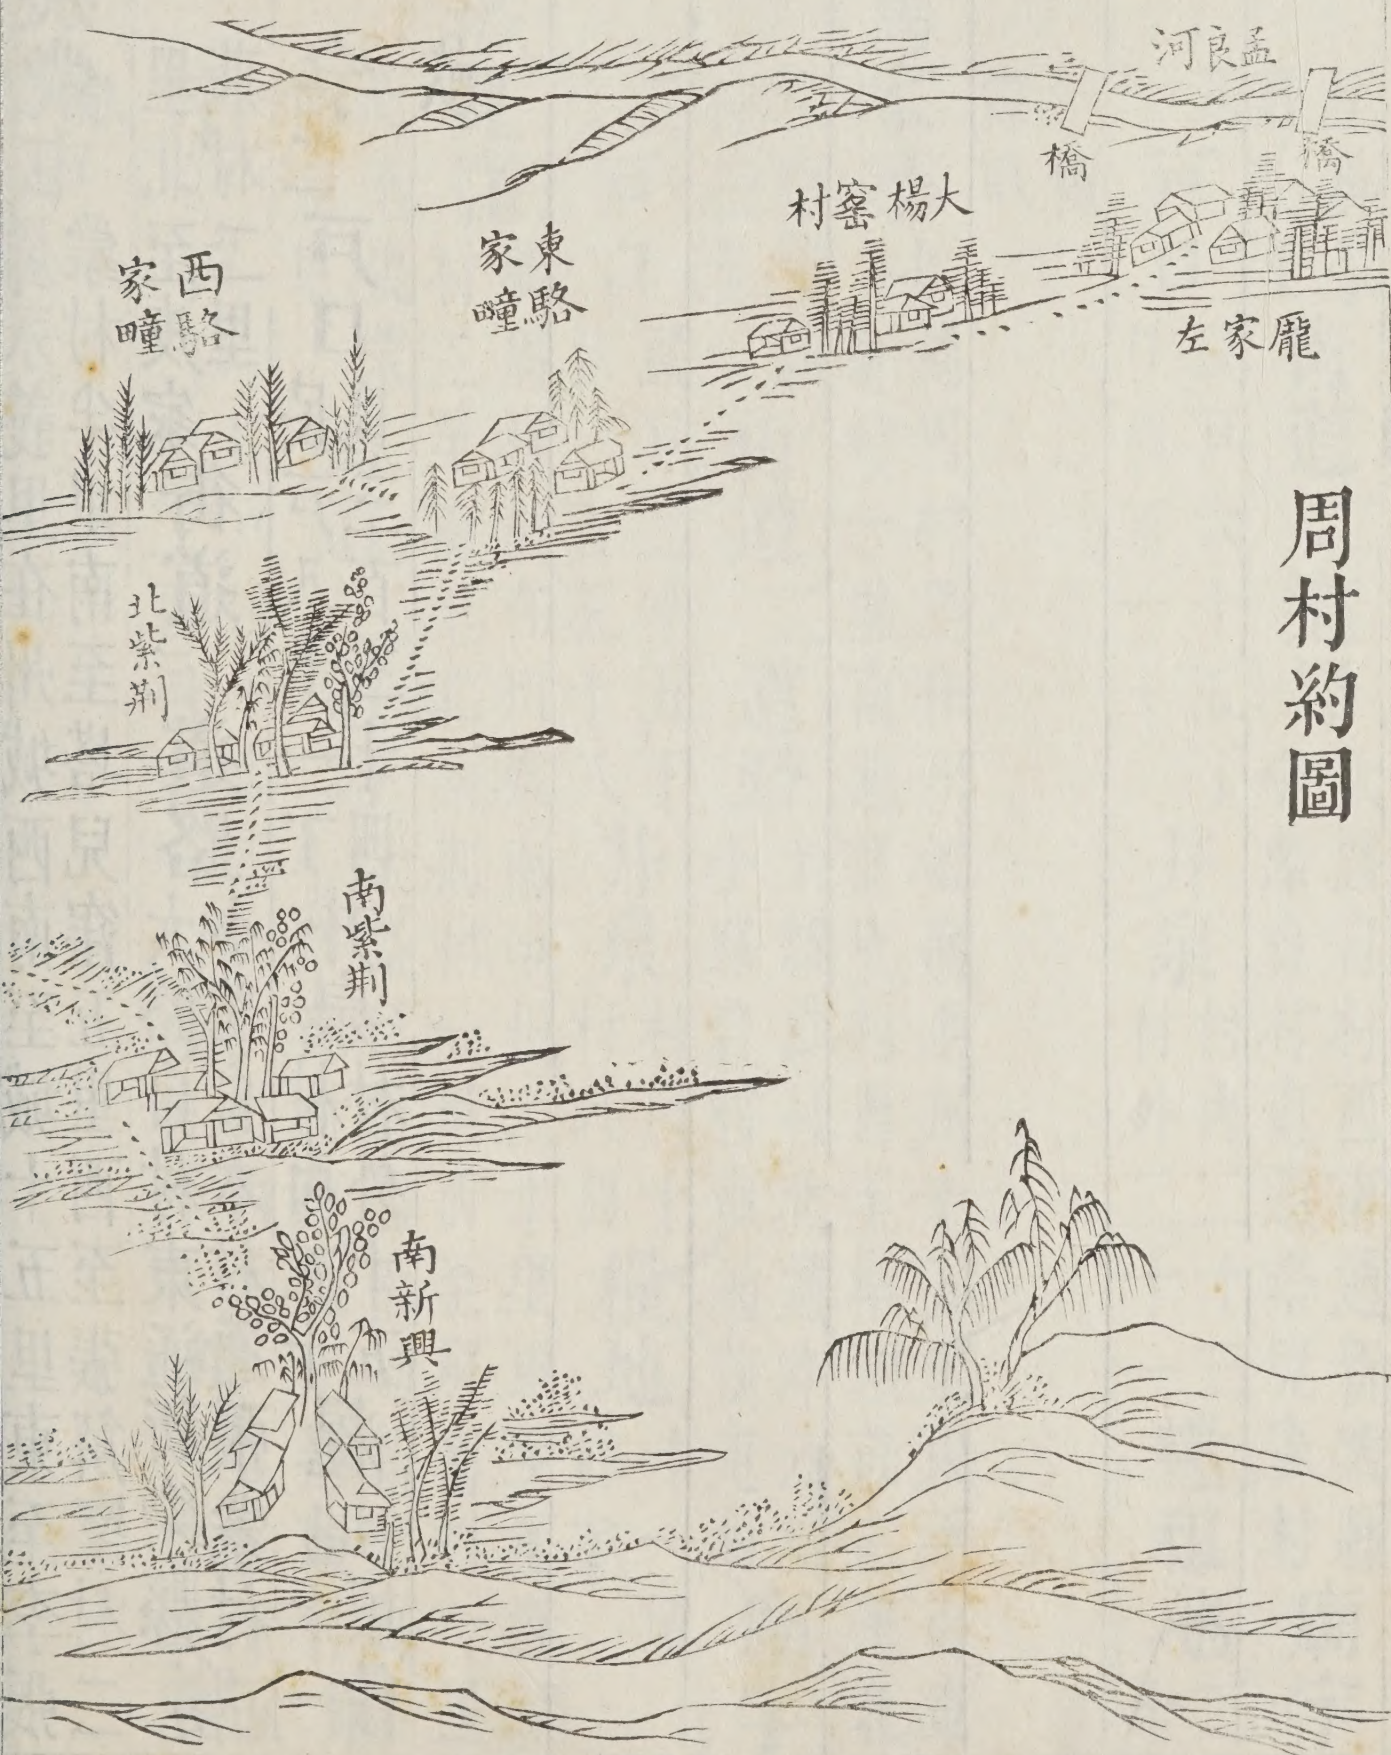 周村約圖
孟良河
橋
橋
龎家左
大楊窰村
東駱家疃
西駱家疃
北紫荆
南紫荆
南新興